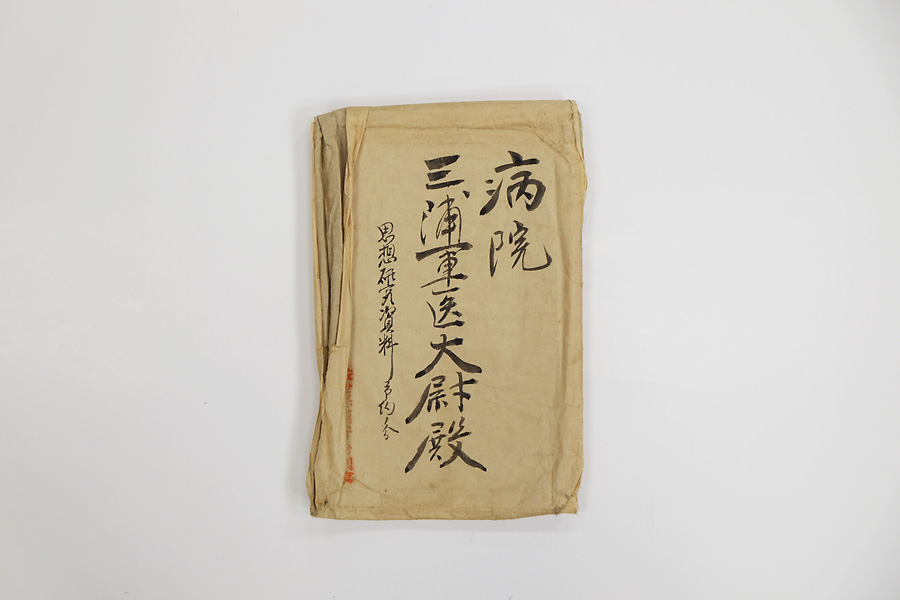 病院
三浦軍医大尉殿
思想研究資料 予約分